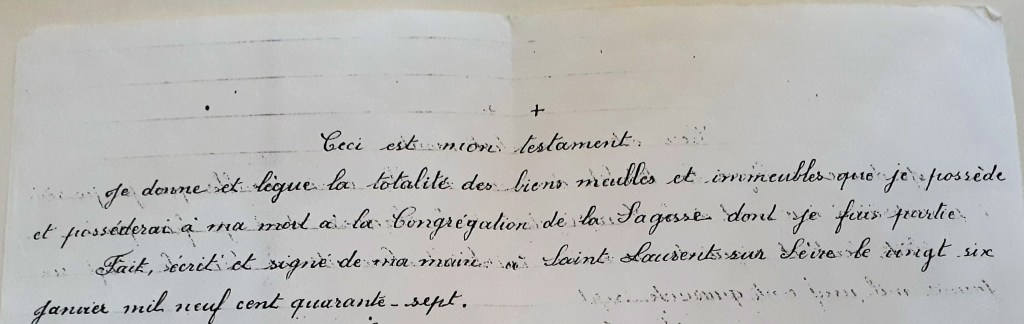 +
Ceci est mon testament.
Je donne et lègue la totalité des biens meubles et immeubles que je possède
et posséderai à ma mort à la Congrégation de la Sagesse dont je fais partie
Fait, écrit et signé de ma main à Saint Laurent sur Sèvre le vingt six
janvier mil neuf cent quarante-sept.